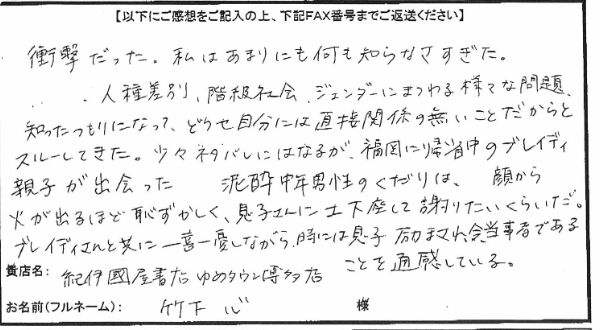 【以下にご感想をご記入の上、下記FAX番号までご返送ください】
衝撃だった。私はあまりにも何も知らなさすぎた。
人種差別、階級社会、ジェンダーにまつわる様々な問題、
知ったつもりになって、どうせ自分には直接関係の無いことだからと
スルーしてきた。少々ネタバレにはなるが、福岡に帰省中のブレイディ
親子が出会った 泥酔中年男性のくだりは、顔から
火が出るほど恥ずかしく、息子さんに土下座して謝りたいくらいだ。
ブレイディさんと共に一喜一憂しながら、時には息子 励まされ、当事者である
ことを通感している。
貴店名: 紀伊國屋書店 ゆめタウン博多店
お名前(フルネーム): 竹下 心 様